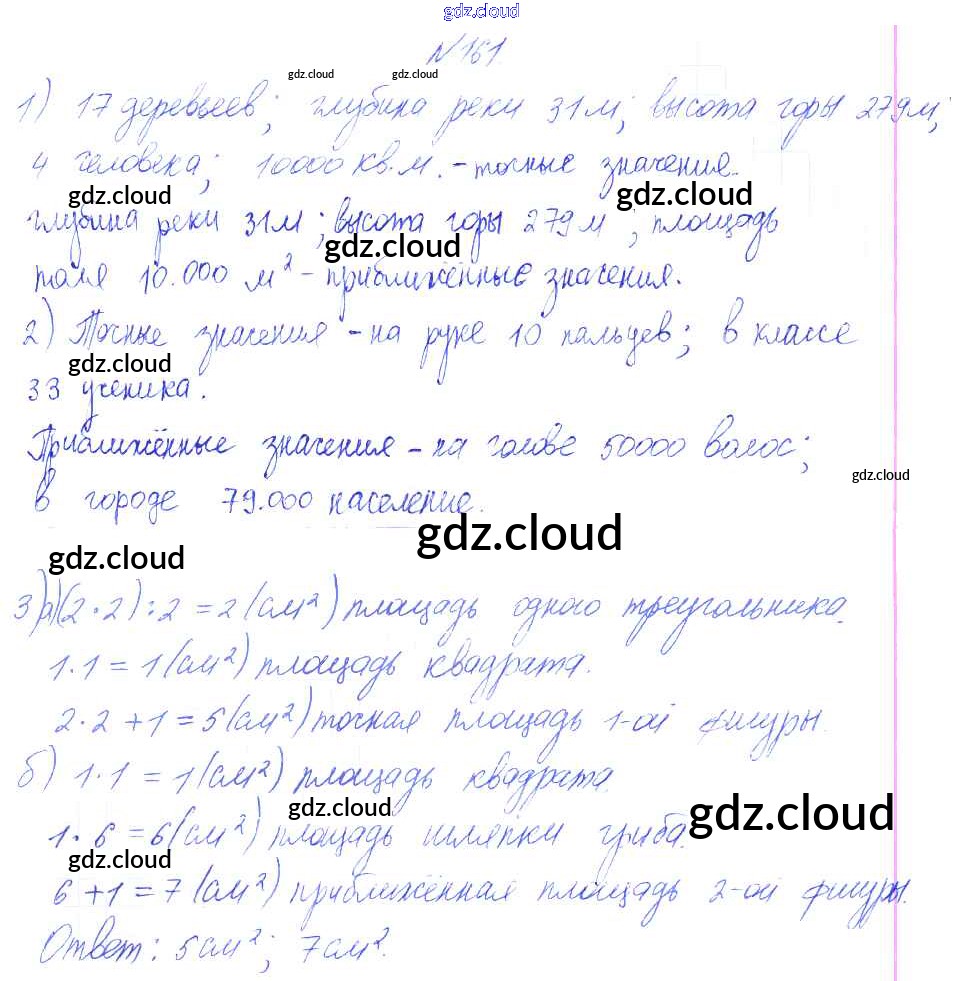 gdz.cloud
N 161.
gdz.cloud gdz.cloud
1) 17 деревьев; глубина реки 31 м; высота горы 279 м;
4 человека; 10000 кв.м. - точные значения.
gdz.cloud gdz.cloud
глубина реки 31 м; высота горы 279 м; площадь
gdz.cloud
поля 10.000 м² - приближённые значения.
2) Точные значения - на руке 10 пальцев; в классе
gdz.cloud
33 ученика.
Приближённые значения - на голове 50000 волос;
gdz.cloud
в городе 79.000 население.
gdz.cloud
gdz.cloud
3) а) (2·2):2 = 2 (см²) площадь одного треугольника.
1·1 = 1 (см²) площадь квадрата.
2·2+1 = 5 (см²) точная площадь 1-ой фигуры.
б) 1·1 = 1 (см²) площадь квадрата.
gdz.cloud gdz.cloud
1·6 = 6 (см²) площадь шляпки гриба.
gdz.cloud
6+1 = 7 (см²) приближённая площадь 2-ой фигуры.
Ответ: 5 см²; 7 см².